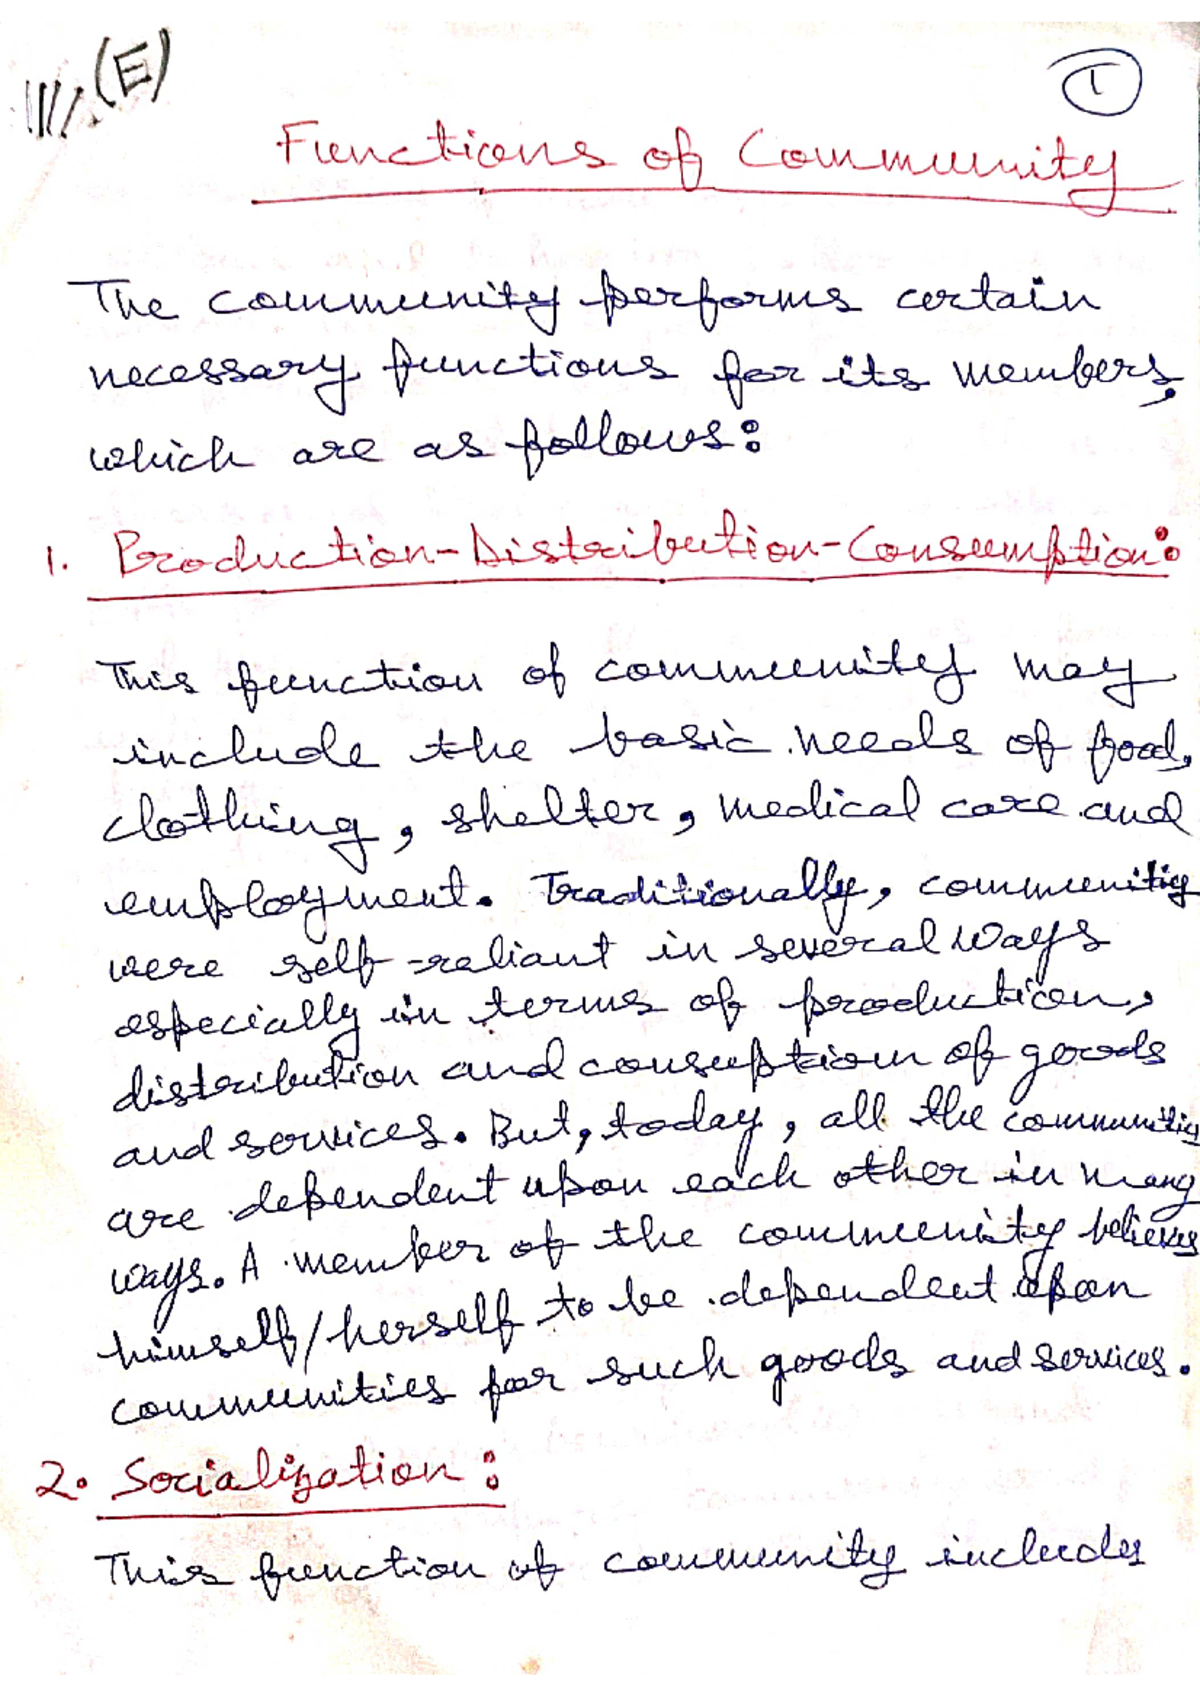 III. (E)
1
Functions of Community
The community performs certain
necessary functions for its members,
which are as follows:
1. Production-Distribution-Consumption:
This function of community may
include the basic needs of food,
clothing, shelter, medical care and
employment. Traditionally, communities
were self-reliant in several ways
especially in terms of production,
distribution and consuption of goods
and services. But, today, all the communities
are dependent upon each other in many
ways. A member of the community believes
himself/herself to be dependent upon
communities for such goods and services.
2. Socialization:
This function of community includes